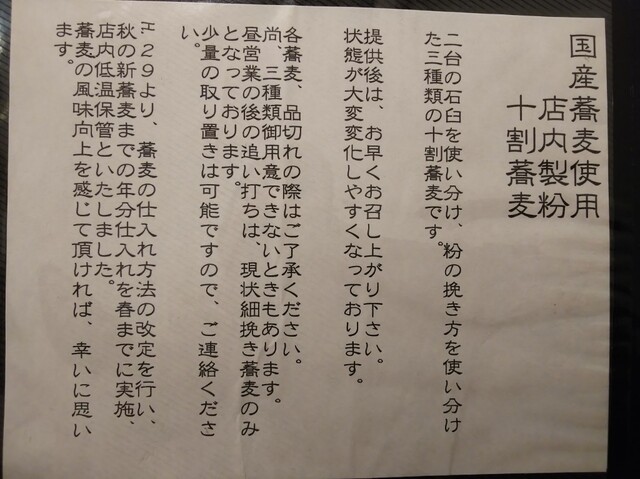 国産蕎麦使用
店内製粉
十割蕎麦
二台の石臼を使い分け、粉の挽き方を使い分け
た三種類の十割蕎麦です。
提供後は、お早くお召し上がり下さい。
状態が大変変化しやすくなっております。
各蕎麦、品切れの際はご了承ください。
尚、三種類御用意できないときもあります。
昼営業の後の追い打ちは、現状細挽き蕎麦のみ
となっております。
少量の取り置きは可能ですので、ご連絡くださ
い。
H29より、蕎麦の仕入れ方法の改定を行い、
秋の新蕎麦までの年分仕入れを春までに実施、
店内低温保管といたしました。
蕎麦の風味向上を感じて頂ければ、幸いに思い
ます。